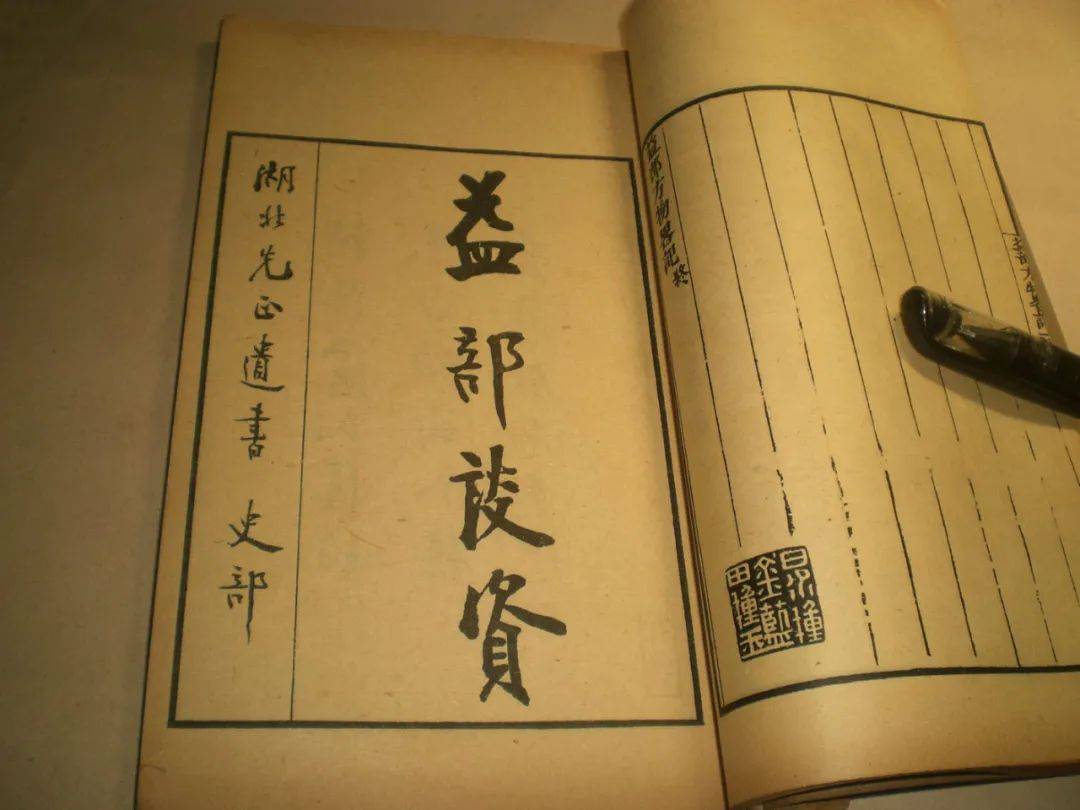 益部方物畧記終
益部談資
湖北先正遺書 史部